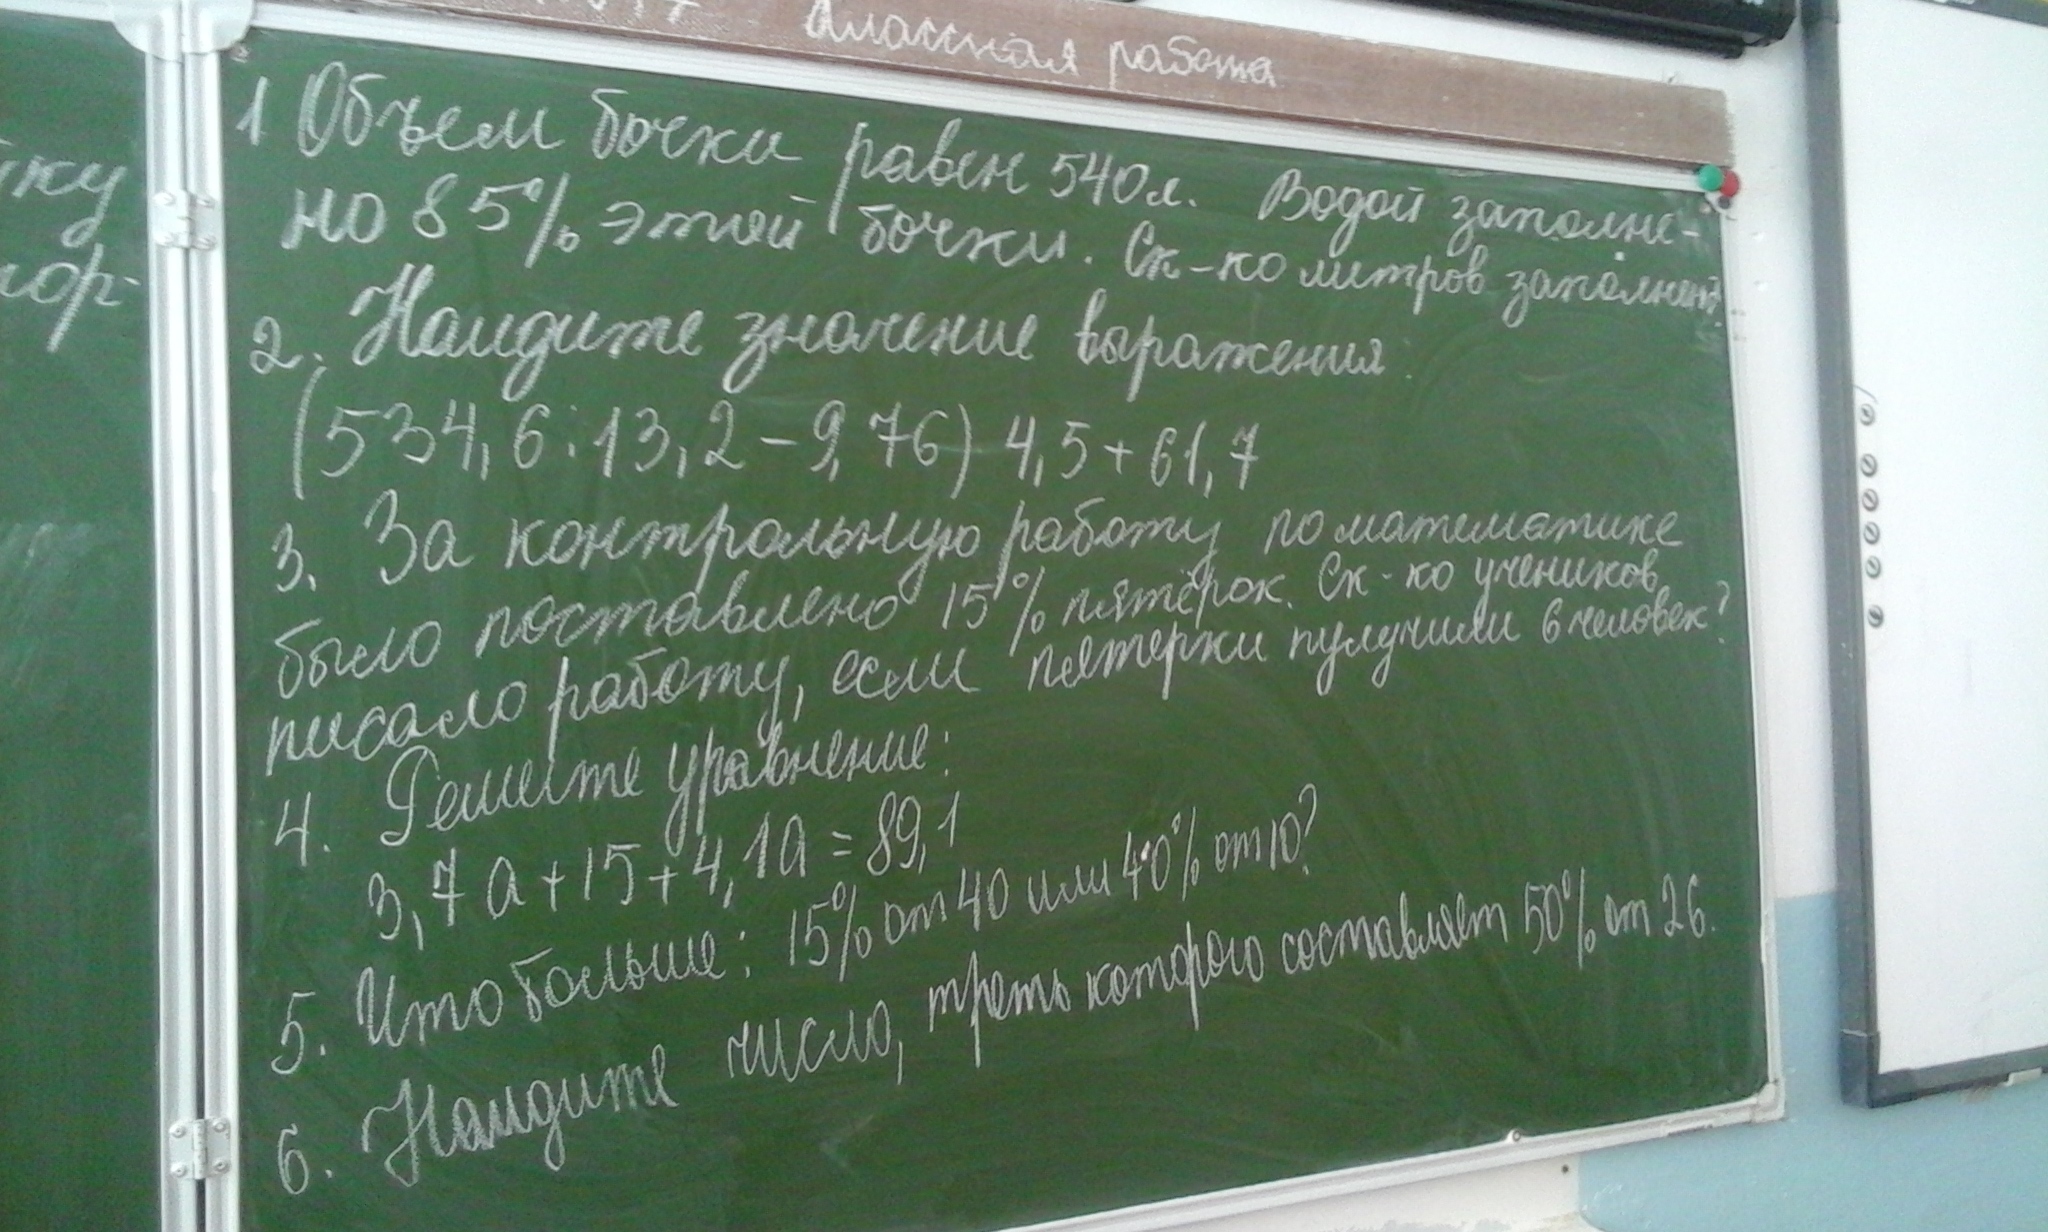 Классная работа
1 Объем бочки равен 540л. Водой заполне-
но 85% этой бочки. Ск-ко литров заполнено?
2. Найдите значение выражения.
(534,6:13,2-9,76) 4,5+61,7
3. За контрольную работу по математике
было поставлено 15% пятёрок. Ск-ко учеников
писало работу, если пятёрки пулучили 6 человек?
4. Решите уравнение:
3,7a+15+4,1a=89,1
5. Что больше: 15% от 40 или 40% от 10?
6. Найдите число, треть которого составляет 50% от 26.